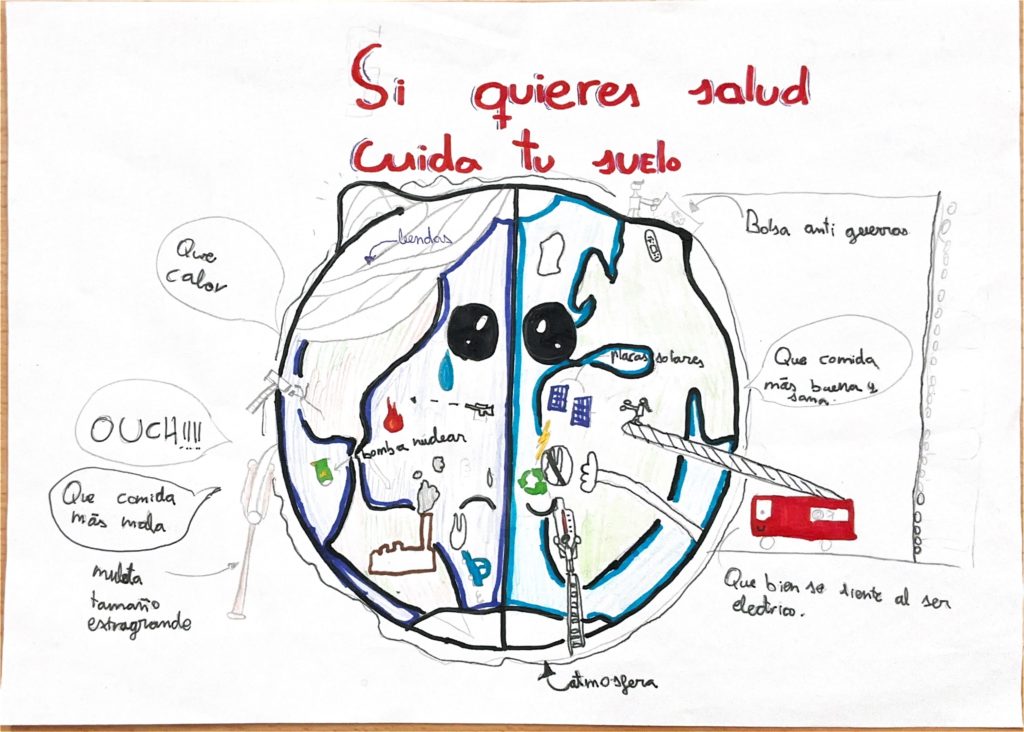 Si quieres salud
cuida tu suelo
Que
calor
bendas
Bolsa anti guerras
placas solares
Que comida
más buena y
sana.
OUCH!!!!
bomba nuclear
Que comida
más mala
muleta
tamaño
estragrande
Que bien se siente al ser
electrico.
atmosfera